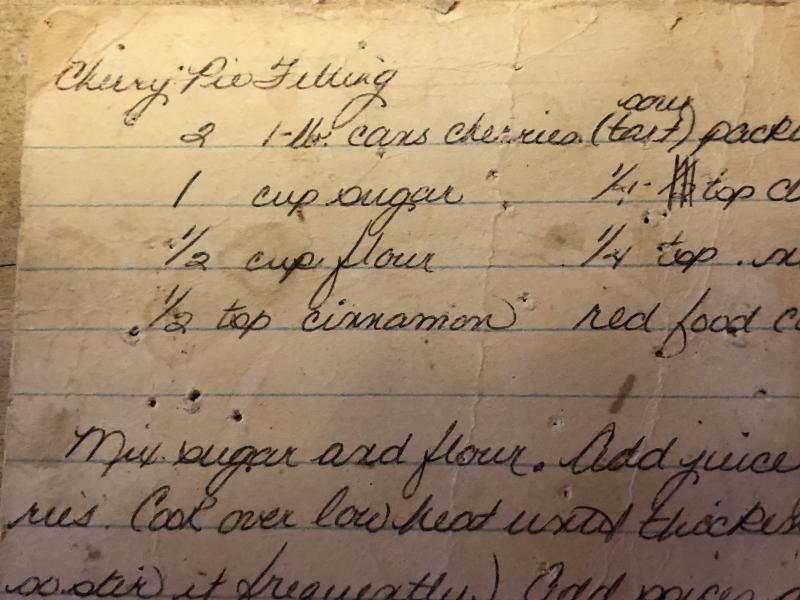 Cherry Pie Filling
sour
2 1-lb. cans cherries (tart) pack
1 cup sugar 1/4 tsp
1/2 cup flour 1/4 tsp.
1/2 tsp cinnamon red food co
Mix sugar and flour. Add juice
ries. Cook over low heat until thicken
so stir it frequently.) Add spices